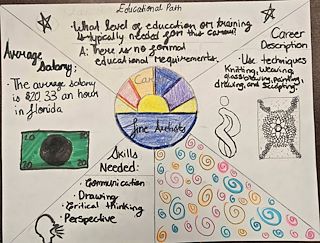 Educational Path
• What level of education or training
is typically needed for this career?
A: There is no formal
educational requirements.
Average
Salary:
• The average salary
is $20.33 an hour
in Florida
Career
Description
• Use techniques
Knitting, weaving,
glass blowing, painting,
drawing, and sculpting.
Fine Artists
Skills
Needed:
• Communication
• Drawing
• Critical thinking
• Perspective